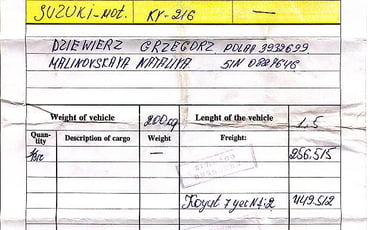 SUZUKI-MOT. KY-216 —
DZIEWIERZ GRZEGORZ POLAR 3932699
MALINOVSKAYA NATALIYA SIN 0887646
Weight of vehicle 200 kg Lenght of the vehicle 1.5
Quantity Description of cargo Weight Freight:
— 256.515
449.512